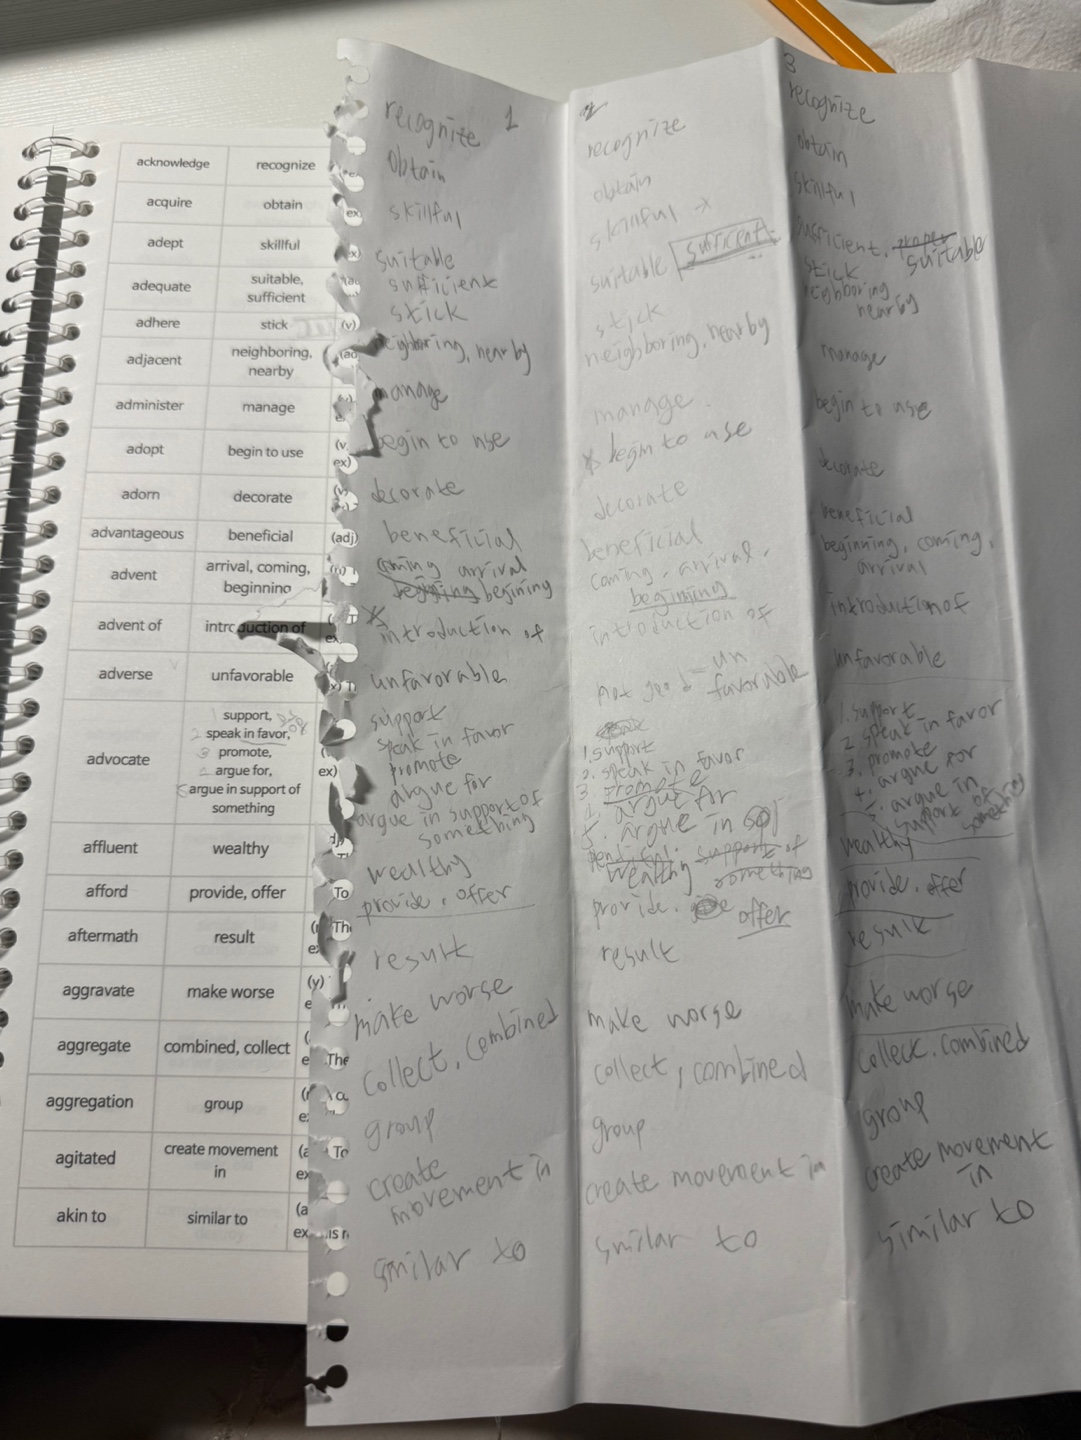 acknowledge recognize
acquire obtain
adept skillful
adequate suitable,
sufficient
adhere stick (v)
adjacent neighboring,
nearby
administer manage
adopt begin to use (v
ex)
adorn decorate
advantageous beneficial (adj)
advent arrival, coming,
beginning
advent of introduction of
adverse unfavorable
advocate support,
speak in favor,
promote,
argue for, ex)
argue in support of
something
affluent wealthy
afford provide, offer To
aftermath result
aggravate make worse
aggregate combined, collect The
aggregation group
agitated create movement
in
akin to similar to
1
recognize
obtain
skillful
suitable
sufficient
stick
neighboring, nearby
manage
begin to use
decorate
beneficial
coming arrival
begining
introduction of
unfavorable
support
speak in favor
promote
argue for
argue in support of
something
wealthy
provide, offer
result
make worse
collect, combined
group
create
movement in
similar to
2
recognize
obtain
skillful
suitable sufficient
stick
neighboring, nearby
manage
begin to use
decorate
beneficial
coming, arrival,
beginning
introduction of
not good = un
favorable
1. support
2. speak in favor
3. promote
4. argue for
5. argue in
support of
something
wealthy
provide, offer
result
make worse
collect, combined
group
create movement in
similar to
3
recognize
obtain
skillful
sufficient, proper
suitable
stick
neighboring
nearby
manage
begin to use
decorate
beneficial
beginning, coming,
arrival
introduction of
unfavorable
1. support
2. speak in favor
3. promote
4. argue for
5. argue in
support of
something
wealthy
provide, offer
result
make worse
collect, combined
group
create movement
in
similar to